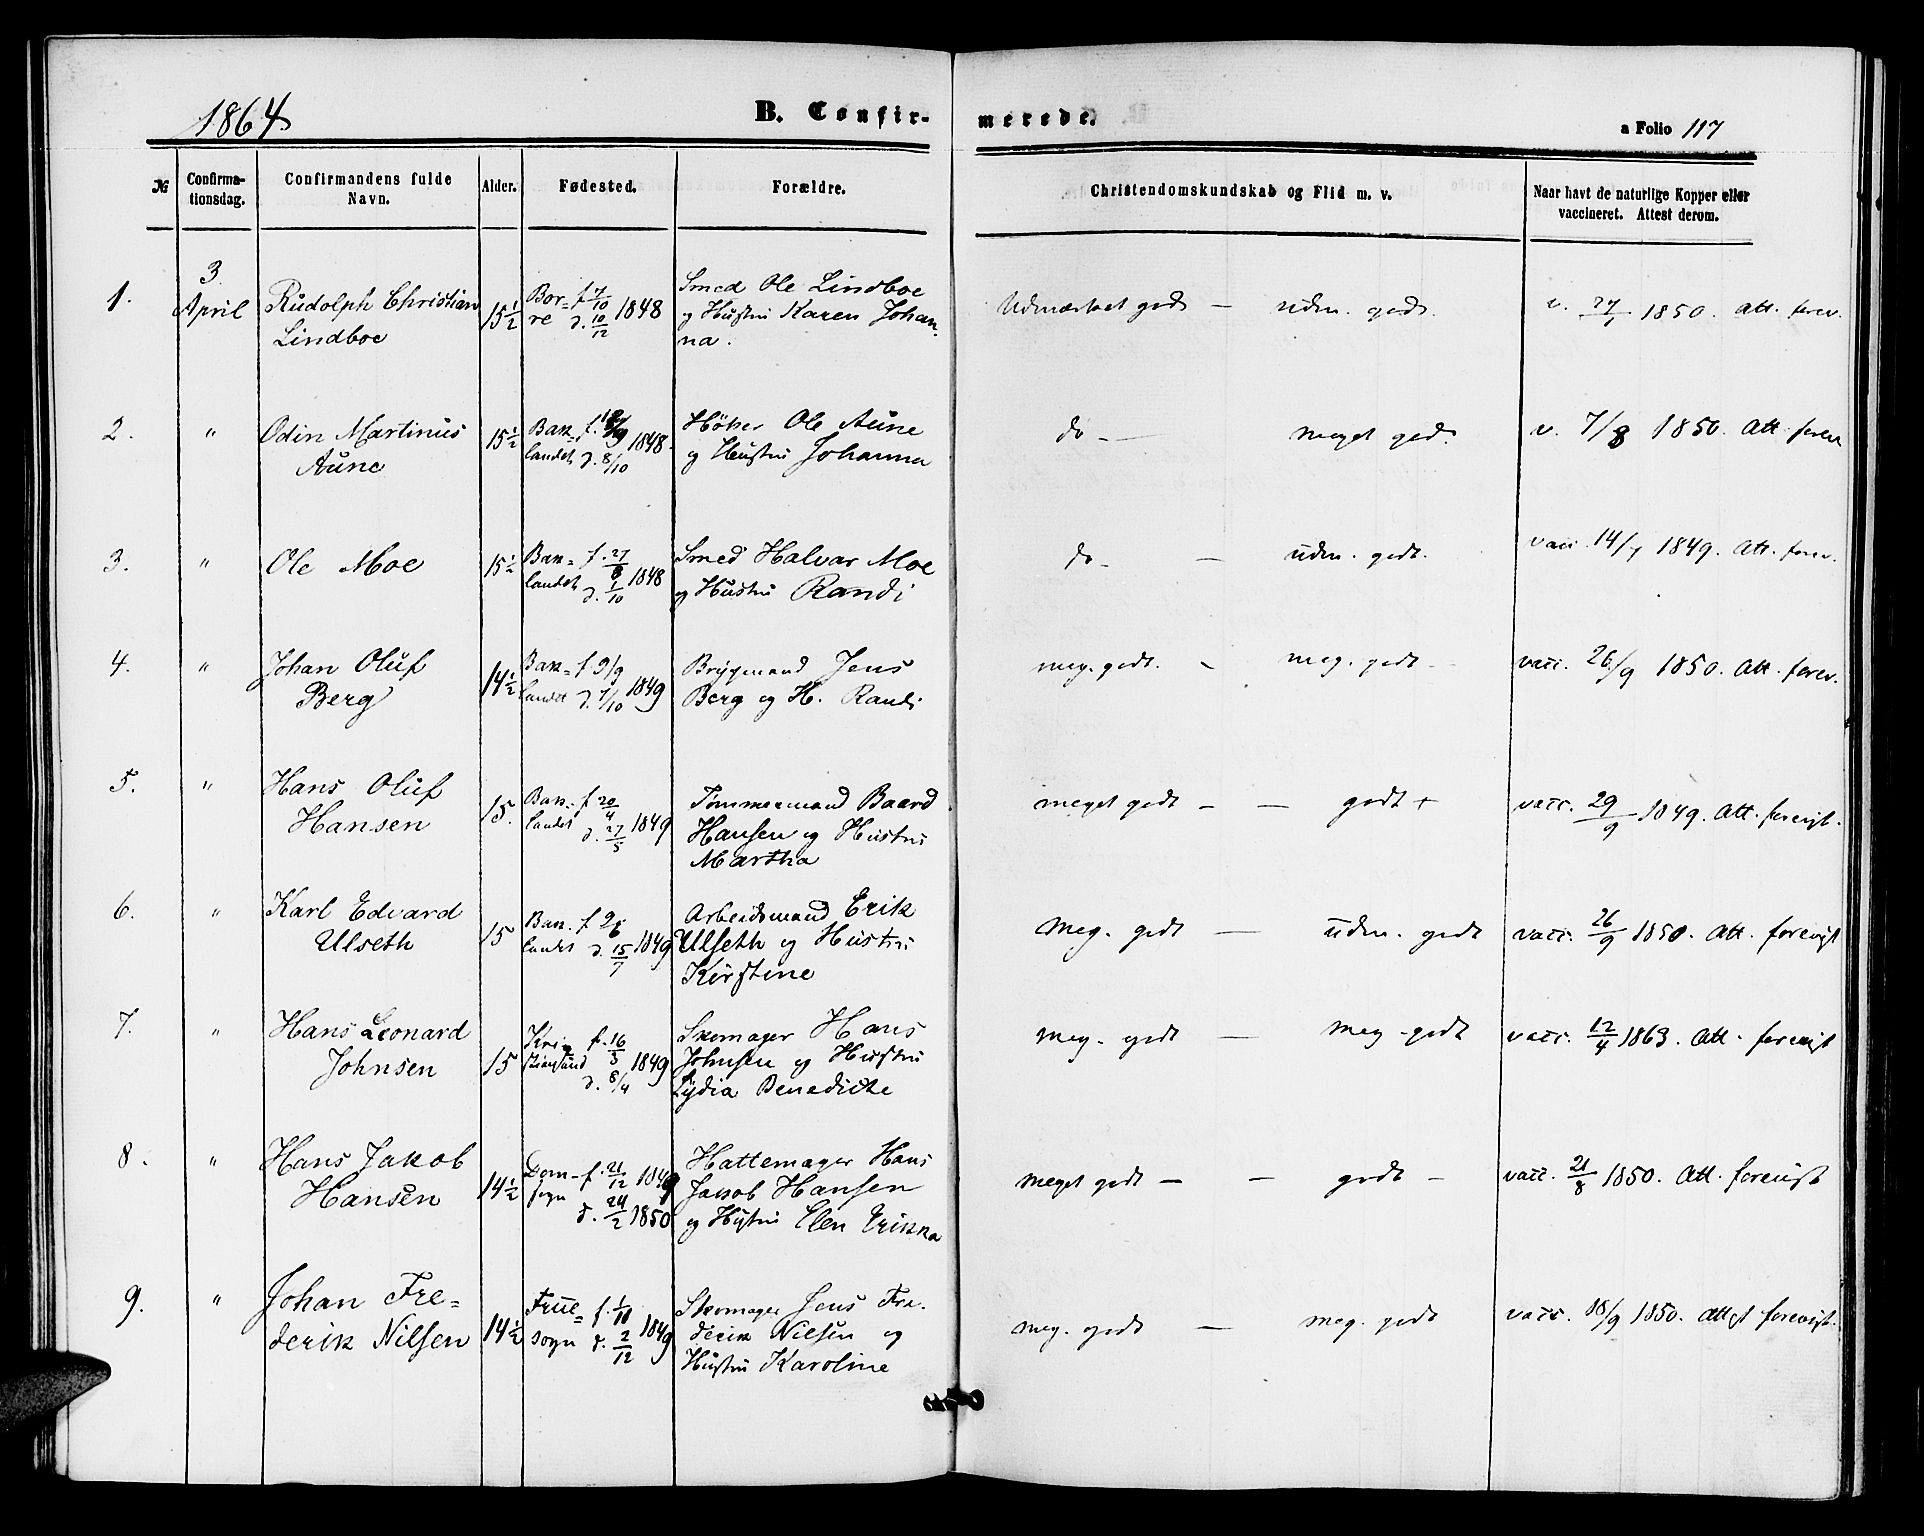 1864
B. Confir-
merede.
a Folio 117
№
Confirma-
tionsdag.
Confirmandens fulde
Navn.
Alder.
Fødested.
Forældre.
Christendomskundskab og Flid m. v.
Naar havt de naturlige Kopper eller
vaccineret. Attest derom.
1.
3
April
Rudolph Christian
Lindboe
15 1/2
Bor- f. 7/10 1848
re d. 10/12
Smed Ole Lindboe
og Hustru Karen Johan-
na.
Udmærket godt — udm. godt.
v. 27/1 1850. Att. forev.
2.
"
Odin Martinus
Aune
15 1/2
Bak- f. 1848
landet d. 8/10
Høker Ole Aune
og Hustru Johanna
do — meget godt.
v. 7/8 1850. Att. forev
3.
"
Ole Moe
15 1/2
Bak= f. 27/8 1848
landet d. 1/10
Smed Halvar Moe
og Hustru Randi
do — udm. godt.
vacc. 14/7 1849. Att. forev.
4.
"
Johan Oluf
Berg
14 1/2
Bak= f. 9/9 1849
landet d. 7/10
Brygmand Jens
Berg og H. Randi
meg. godt. - meg. godt -
vacc. 26/9 1850. Att. forev.
5.
"
Hans Oluf
Hansen
15.
Bak- f. 20/4 1849
landet d. 27/5
Tømmermand Baard
Hansen og Hustru
Martha
meget godt - — godt +
vacc. 29/9 1849. Att. forevist.
6.
"
Karl Edvard
Ulseth
15
Bak- f. 2/6 1849
landet d. 15/7
Arbeidsmand Erik
Ulseth og Hustru
Kirstine
Meg. godt — udm. godt
vacc. 26/9 1850. Att. forevist
7.
"
Hans Leonard
Johnsen
15
Kri- f. 16/3 1849
stiansund d. 8/4
Skomager Hans
Johnsen og Hustru
Lydia Benedicte
meg. godt — meg. godt
vacc. 12/4 1863. Att. forevist
8.
"
Hans Jakob
Hansen
14 1/2
Dom- f. 21/12 1849
sogn d. 24/2 1850
Hattemager Hans
Jakob Hansen
og Hustru Elen Erikka
meget godt — - godt -
vacc. 21/8 1850. Att. forevist
9.
"
Johan Fre=
derik Nilsen
14 1/2
Frue= f. 1/11 1849
sogn d. 2/12
Skomager Jens Fre-
derik Nilsen og
Hustru Karoline
meg. godt — meg. godt
vacc. 18/9 1850. Attest forevist.